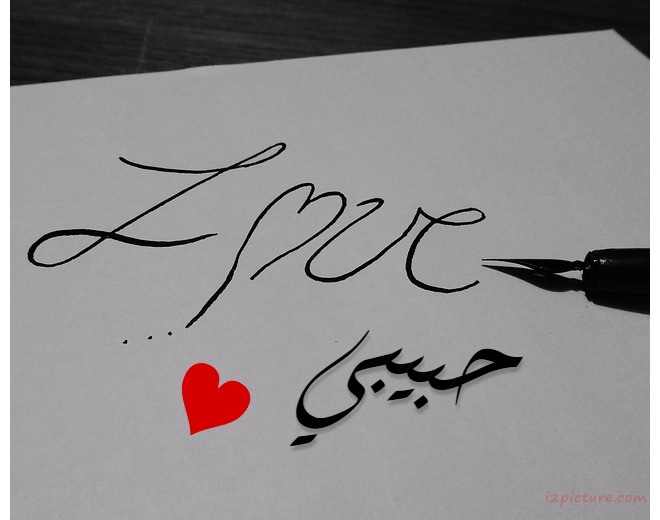 Love
...
حبيبي
i2picture.com